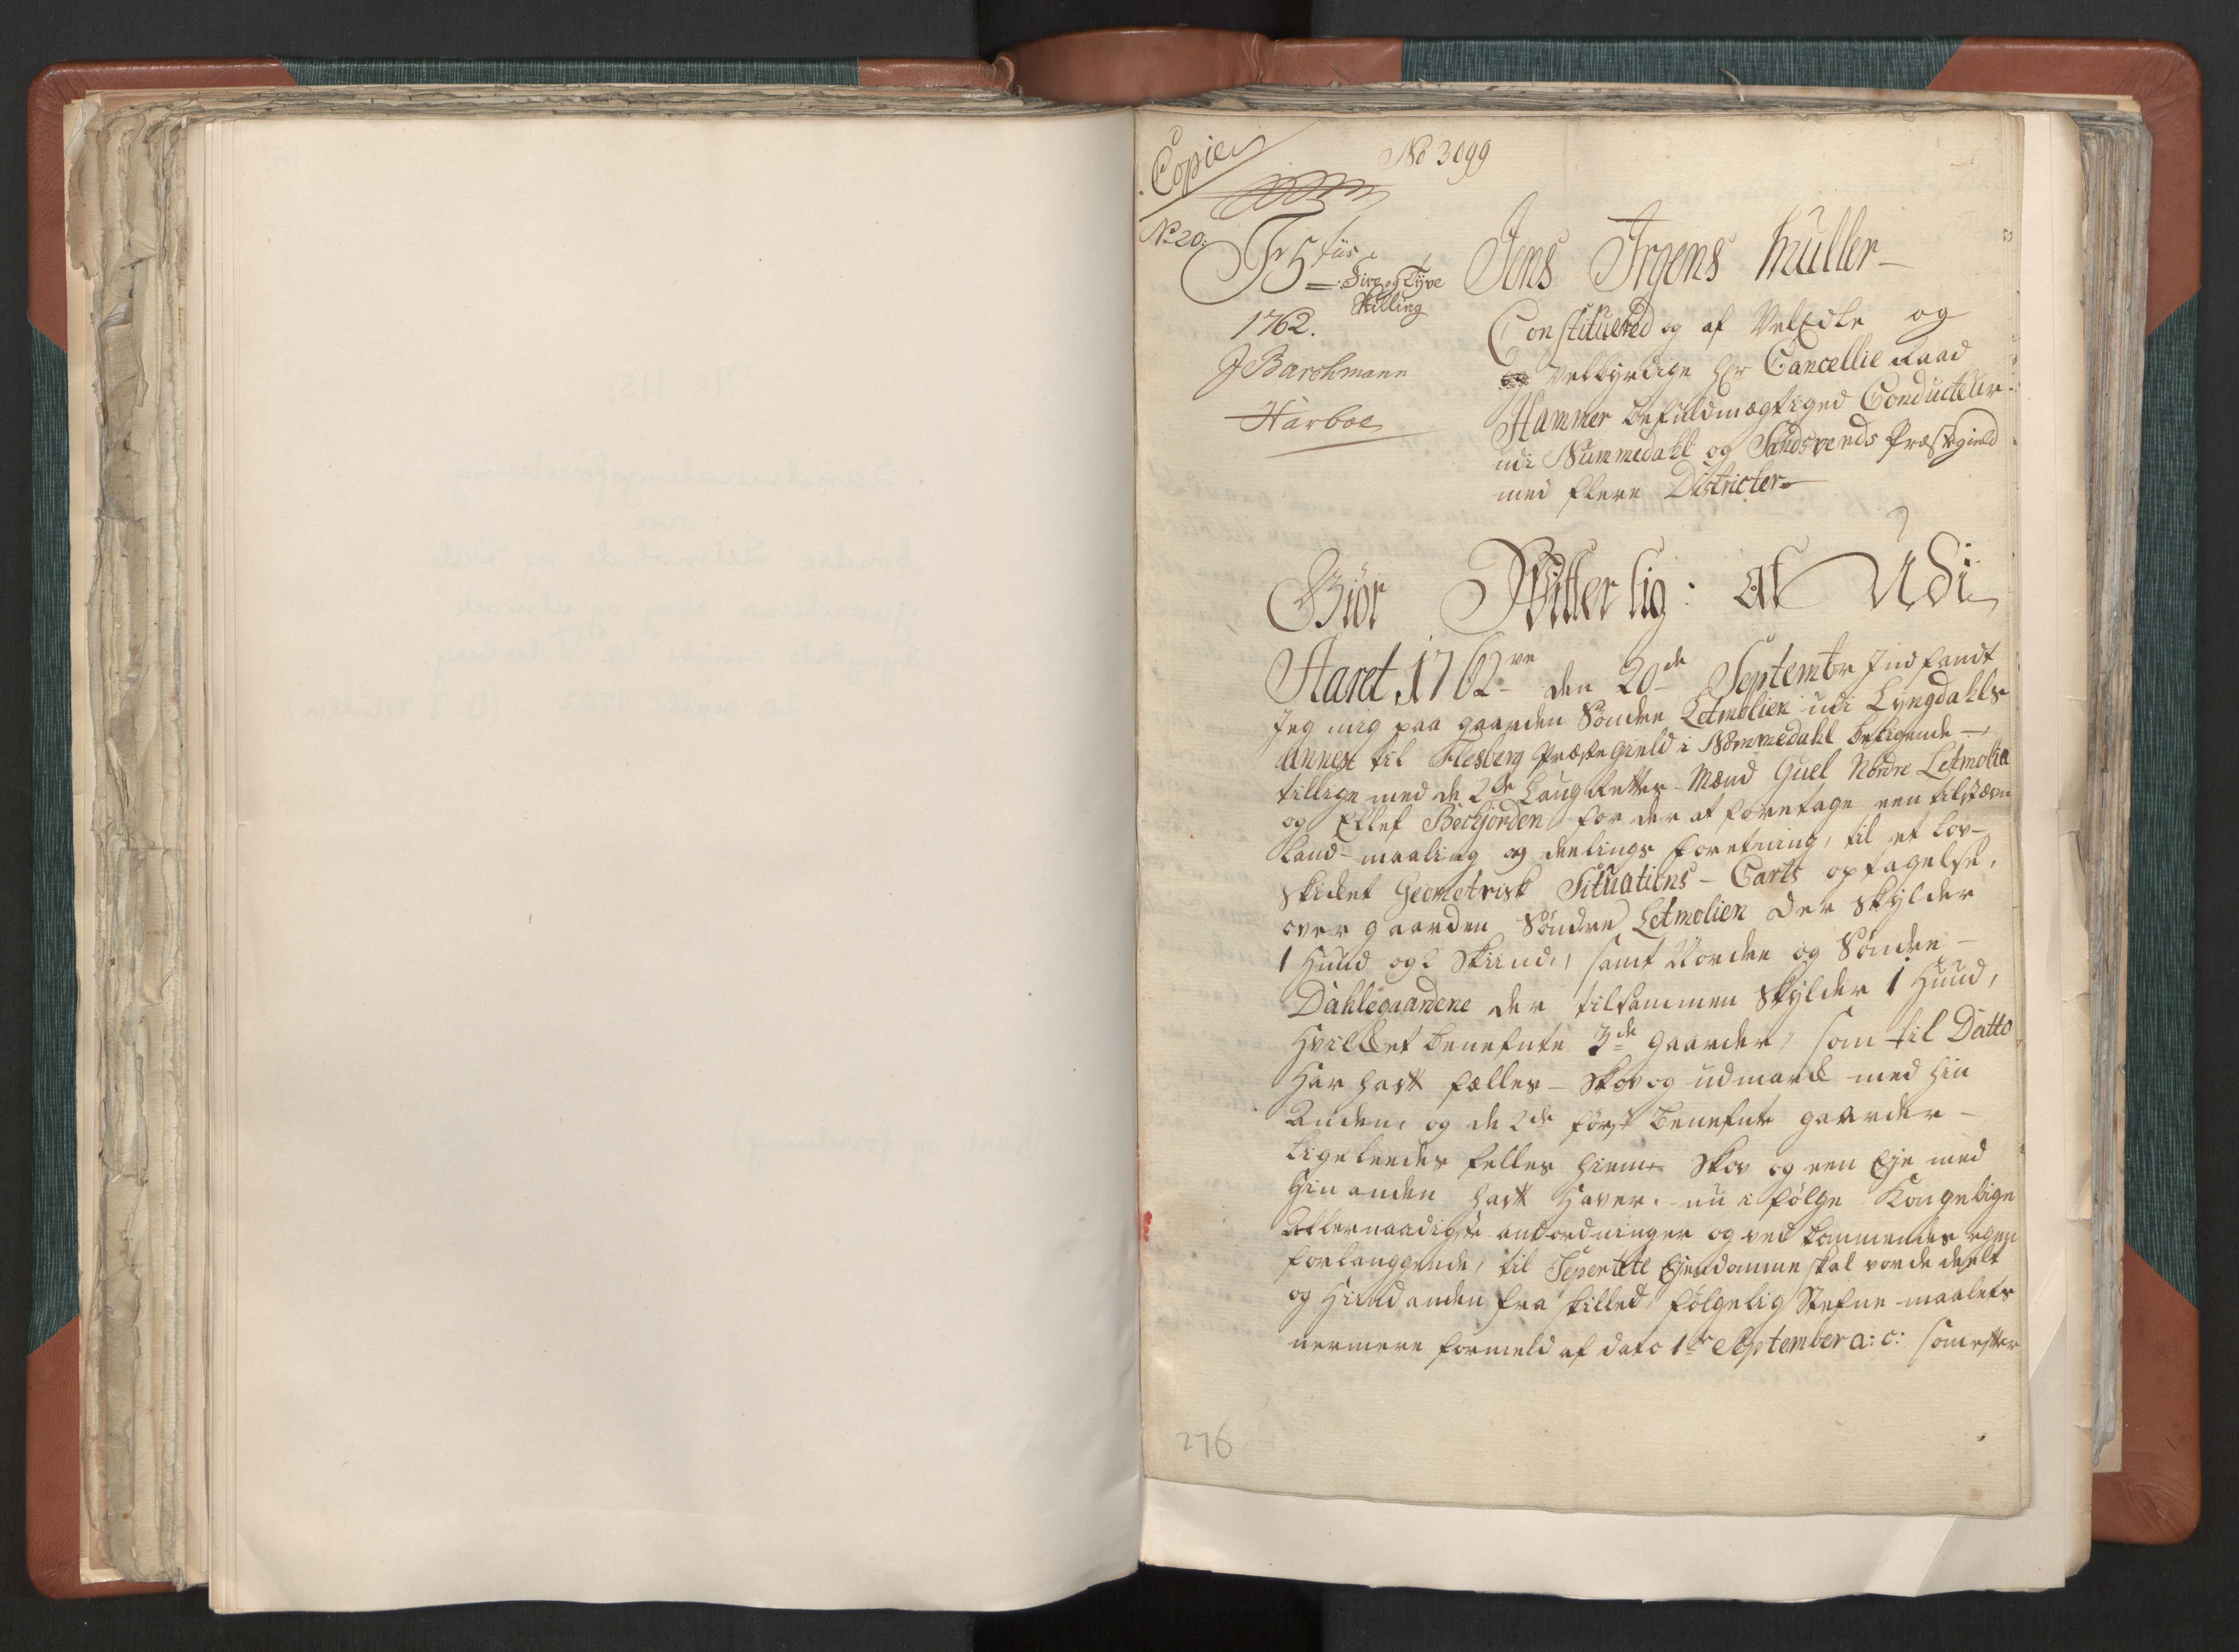 Copie
No 3099
No 20.
Fire og Tyve
Skilling
1762.
J Barchmann
Harboe
Jens Irgens Müller –
Constituered og af VelEdle og
Velbyrdige Hr Cancellie Raad
Hammer befuldmægtiged Conducteur
udi Nummedahl og Sandsverds Præstegield
med flere Districter –
Giör Vitterlig: At Udi
Aaret 1762ve den 20de Septembr Indfandt
Jeg mig paa gaarden Söndre Letmolien udi Lyngdahls
Annex til Flesberg Præstegield i Nommedahl beligende –,
tillige med de 2de Laug Rettes-Mænd Guel Nordre Letmolia
og Ellef Bechjorden for der at foretage een tilstævnt
Land-maaling og deelings forretning, til et lov-
skicket Geometrisk Situations-Carts optagelse,
over gaarden Söndre Letmolien der skylder
1 Huud og 2 Skiind, samt Nordre og Söndre –
Dahlegaardene der tilsammen skylder 1 Huud,
Hvilket benefnte 3de gaarder, som til Datto
Har havt fælles – Skov og udmark med hin
Anden, og de 2de först benefnte gaarder –
ligeleedes felles hiemme Skov og een Eje med
Hin anden havt Haver. nu i fölge Kongelige
Allernaadigste anordninger og ved kommendes egen
forlanggende, til Seperette Ejendomme skal vorde deelt
og Hinndanden fra skilled, fölgelig Stefne-maalets
nermere formeld af dato 1te September a: c: som efter
276